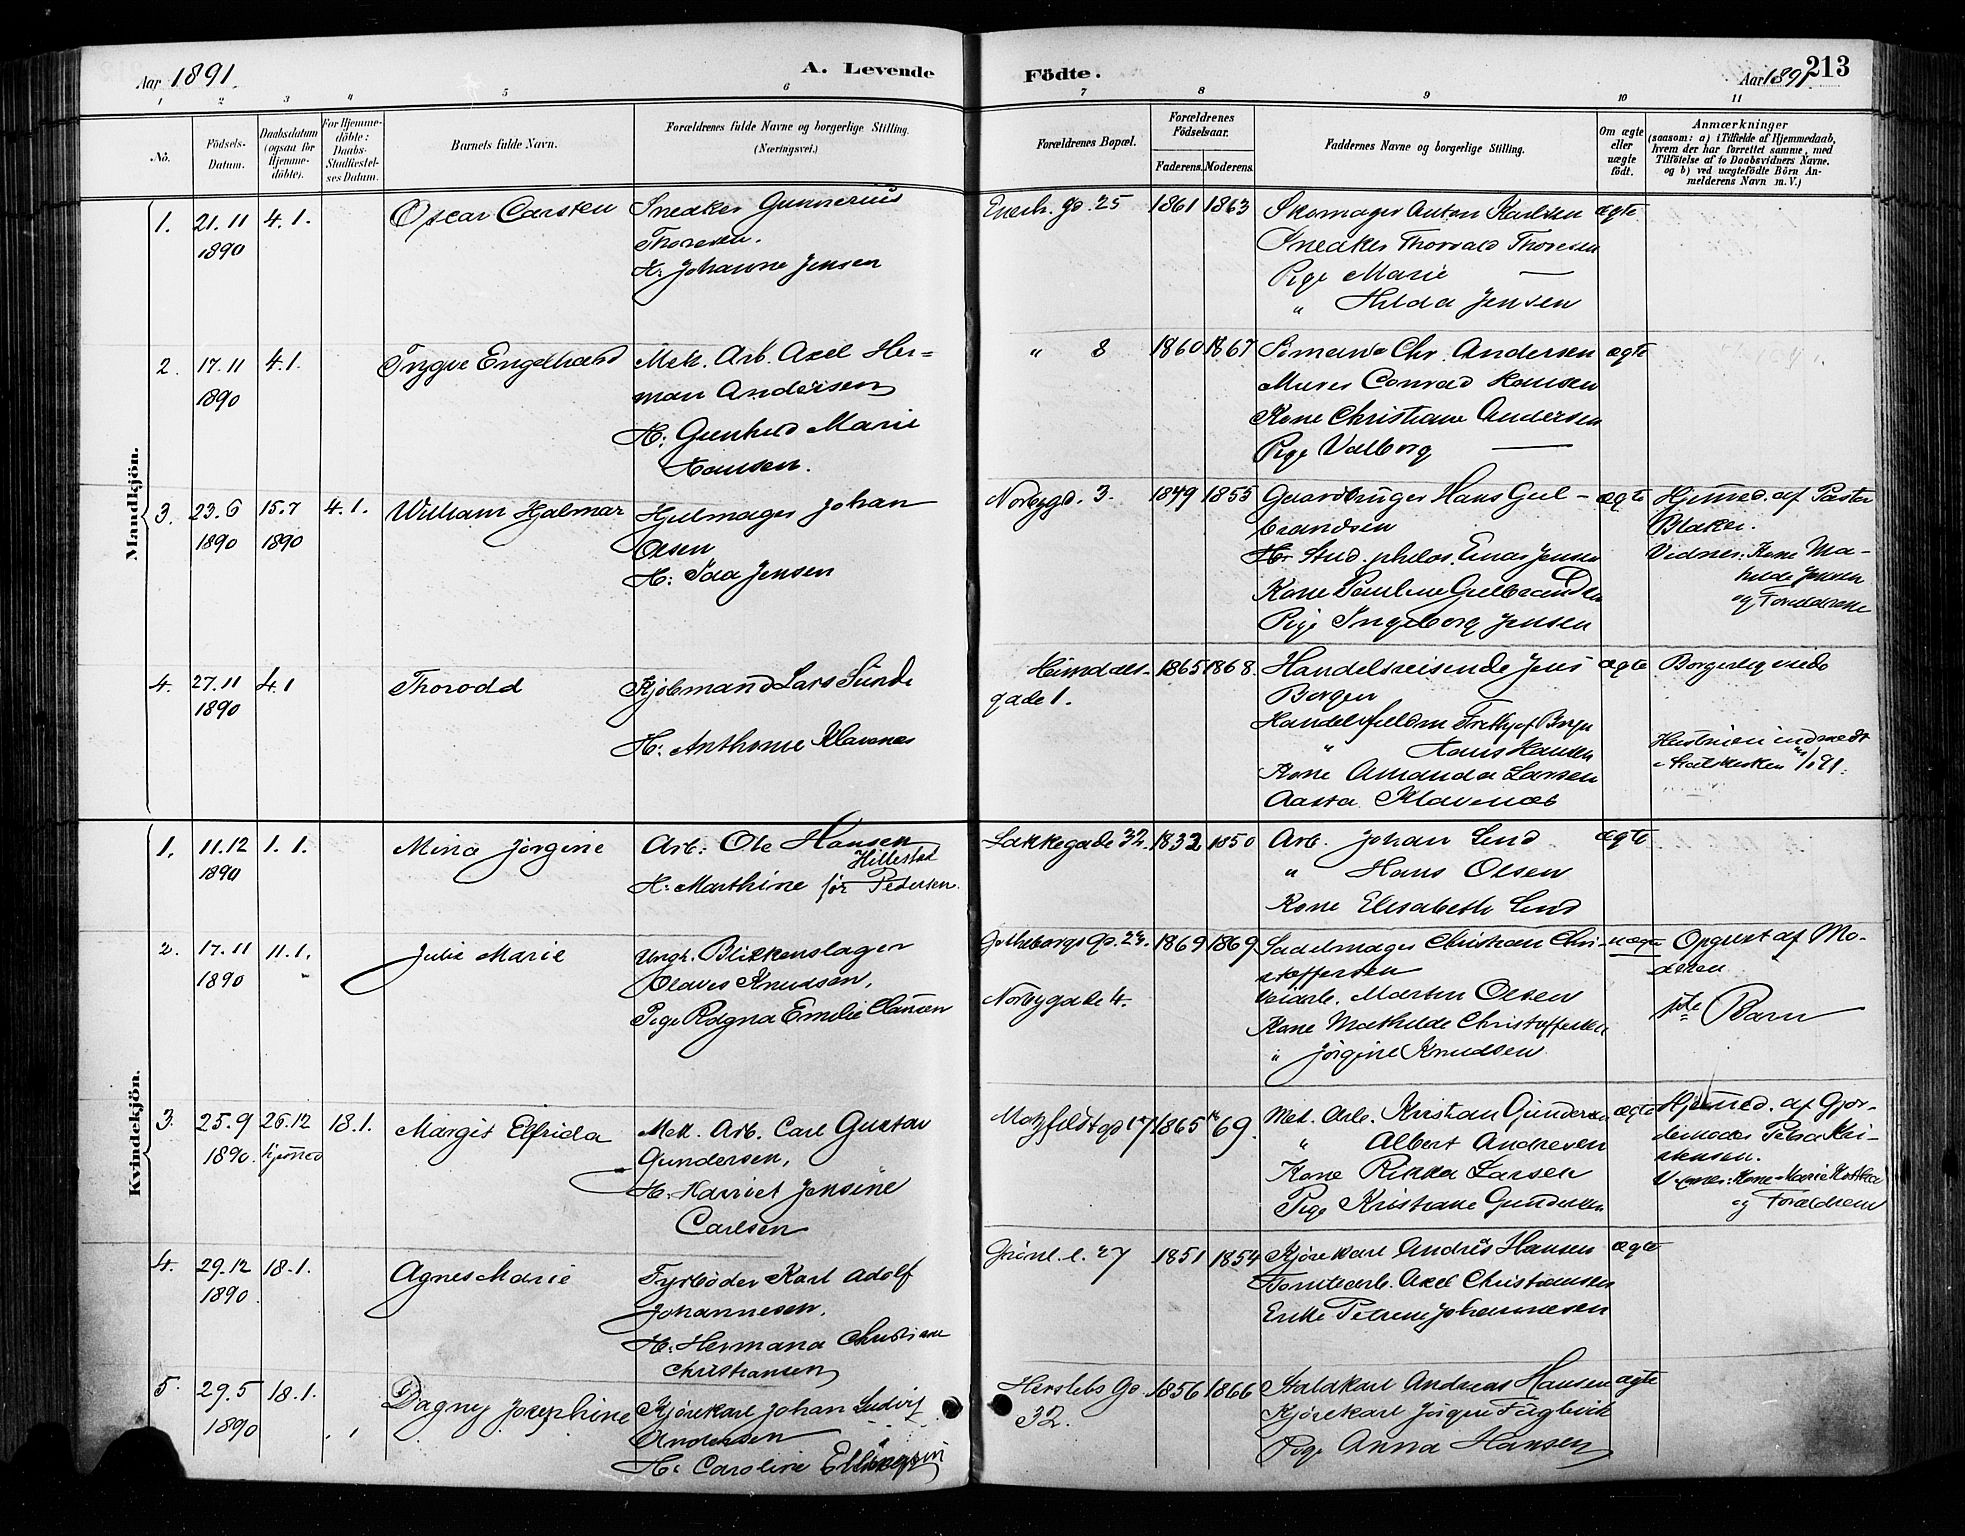 Aar 1891.
A. Levende
Födte.
Aar 1891
213
1 2 3 4 5 6 7 8 9 10 11
No.
Födsels-
Datum.
Daabsdatum
(ogsaa for
Hjemme-
döbte).
For Hjemme-
döbte:
Daabs-
Stadfæstel-
ses Datum.
Barnets fulde Navn.
Forældrenes fulde Navne og borgerlige Stilling.
(Næringsvei.)
Forældrenes Bopæl.
Forældrenes
Födselsaar.
Faderens. Moderens.
Faddernes Navne og borgerlige Stilling.
Om ægte
eller
uægte
födt.
Anmærkninger
(saasom: a) i Tilfælde af Hjemmedaab,
hvem der har forrettet samme, med
Tilföielse af to Daabsvidners Navne.
og b) ved uægtefödte Börn An-
melderens Navn m. V.)
Mandkjön.
1. 21.11
1890
4.1.
Oscar Carsten
Sneaker Gunnerius
Thoresen.
H: Johanne Jensen
Enerh. gd. 25
1861 1863
Skomager Anton Karlsen
Sneaker Thorvald Thoresen
Pige Marie —
" Hilda Jensen
ægte
2. 17.11
1890
4.1.
Trygve Engelhardt
Mek. Arb. Axel Her-
man Andersen
H: Gunhild Marie
Hansen.
" 8
1860 1867
Sömand Chr. Andersen
Murer Conrad Hansen
Kone Christiane Andersen
Pige Valborg —
ægte
3. 23.6
1890
15.7
1890
4.1.
William Hjalmar
Hjulmager Johan
Olsen
H: Ida Jensen
Norbygd. 3.
1849 1855
Gaardbruger Hans Gul-
brandsen
Hr Stud. philos. Einar Jensen
Kone Pauline Gulbrandsen
Pige Ingeborg Jensen
ægte
Hjemmed. af Pastor
Blaker.
Vidner: Kone Ma-
hilde Jensen
og Forældrene
4. 27.11
1890
4.1
Thorodd
Kjöbmand Lars Sunde
H: Anthonie Klavenes
Heimdals-
gade 1.
1865 1868.
Handelsreisende Jens
Borgen
Handelsfuldm Frithjof Borge
" Hans Hansen
Kone Amanda Larsen
Aasta Klavenæs
ægte
Borgerlig viede
Hustruen indmeldt
i Statskirken
Kvindekjön.
1. 11.12
1890
1.1.
Mina Jörgine
Arb. Ole Hansen
Hillestad
H: Marthine för Pedersen.
Lakkegade 32.
1832 1850
Arb. Johan Lund
" Hans Olsen
Kone Elisabeth Lund
ægte
2. 17.11
1890
11.1.
Julie Marie
Ungk. Blikkenslager
Olaves Knudsen,
Pige Ragna Emilie Clausen
Gotheborgs gd. 23.
Norbygade 4.
1869 1869
Sadelmager Christian Chri-
stoffersen
Veiarb. Martin Olsen
Kone Mathilde Christoffersen
" Jörgine Knudsen
uægte
Opgivet af Mo-
deren
1ste Barn
3. 25.9
1890.
26.12
hjemmed
18.1.
Margit Elfrida
Mek. Arb. Carl Gustav
Gundersen,
H: Harriet Jensine
Carlsen
Motzfeldt gd 17
1865 69.
Mek. Arb. Kristian Gundersen
" Albert Andresen
Kone Rikka Larsen
Pige Kristiane Gundersen
ægte
Hjemmed. af Gjor-
demoder Petra Kri-
stensen.
Vidner: Kone Marie
og Forældrene
4. 29.12
1890.
18.1.
Agnes Marie
Fyrböder Karl Adolf
Johannesen.
H: Hermana Christiane
Christiansen
Grönl. l. 27
1851 1854
Kjörekarl Andrés Hansen
Tomtearb. Axel Christiansen
Enke Petrine Johannesen
ægte
5. 29.5
1890
18.1.
Dagny Josephine
Kjörekarl Johan Ludvig
Andersen
H: Caroline
Herslebs Gd.
32.
1856 1866
Staldkarl Andreas Hansen
Kjörekarl Jörgen Fuglevik
Pige Anna Hansen
ægte